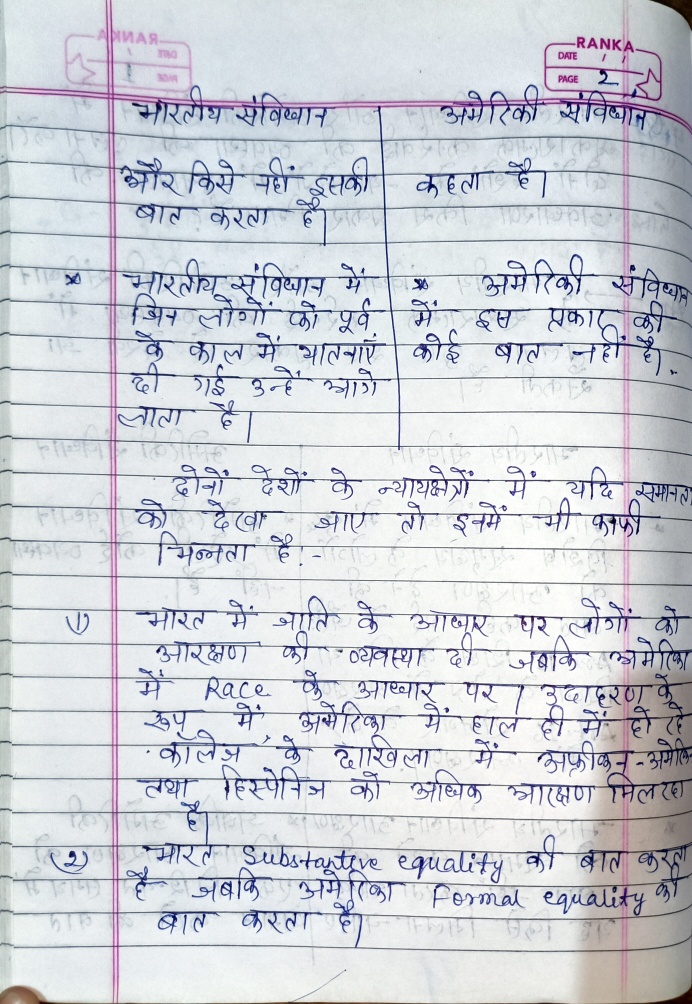 RANKA
DATE / /
PAGE 2
भारतीय संविधान
अमेरिकी संविधान
और किसे नहीं इसकी
बात करता है।
कहता है।
* भारतीय संविधान में
जिन लोगों को पूर्व
के काल में यातनाएँ
दी गई उन्हें आगे
लाता है।
* अमेरिकी संविधान
में इस प्रकार की
कोई बात नहीं है।
दोनों देशों के न्यायक्षेत्रों में यदि समानता
को देखा जाए तो इनमें भी काफी
भिन्नता है:-
(1) भारत में जाति के आधार पर लोगों को
आरक्षण की व्यवस्था दी जबकि अमेरिका
में Race के आधार पर। उदाहरण के
रूप में अमेरिका में हाल ही में हो रहे
कॉलेज के दाखिला में अफ्रीकन-अमेरि
तथा हिस्पेनिज को अधिक आरक्षण मिल रहा
है।
(2) भारत Substantive equality की बात करता
है जबकि अमेरिका Formal equality की
बात करता है।